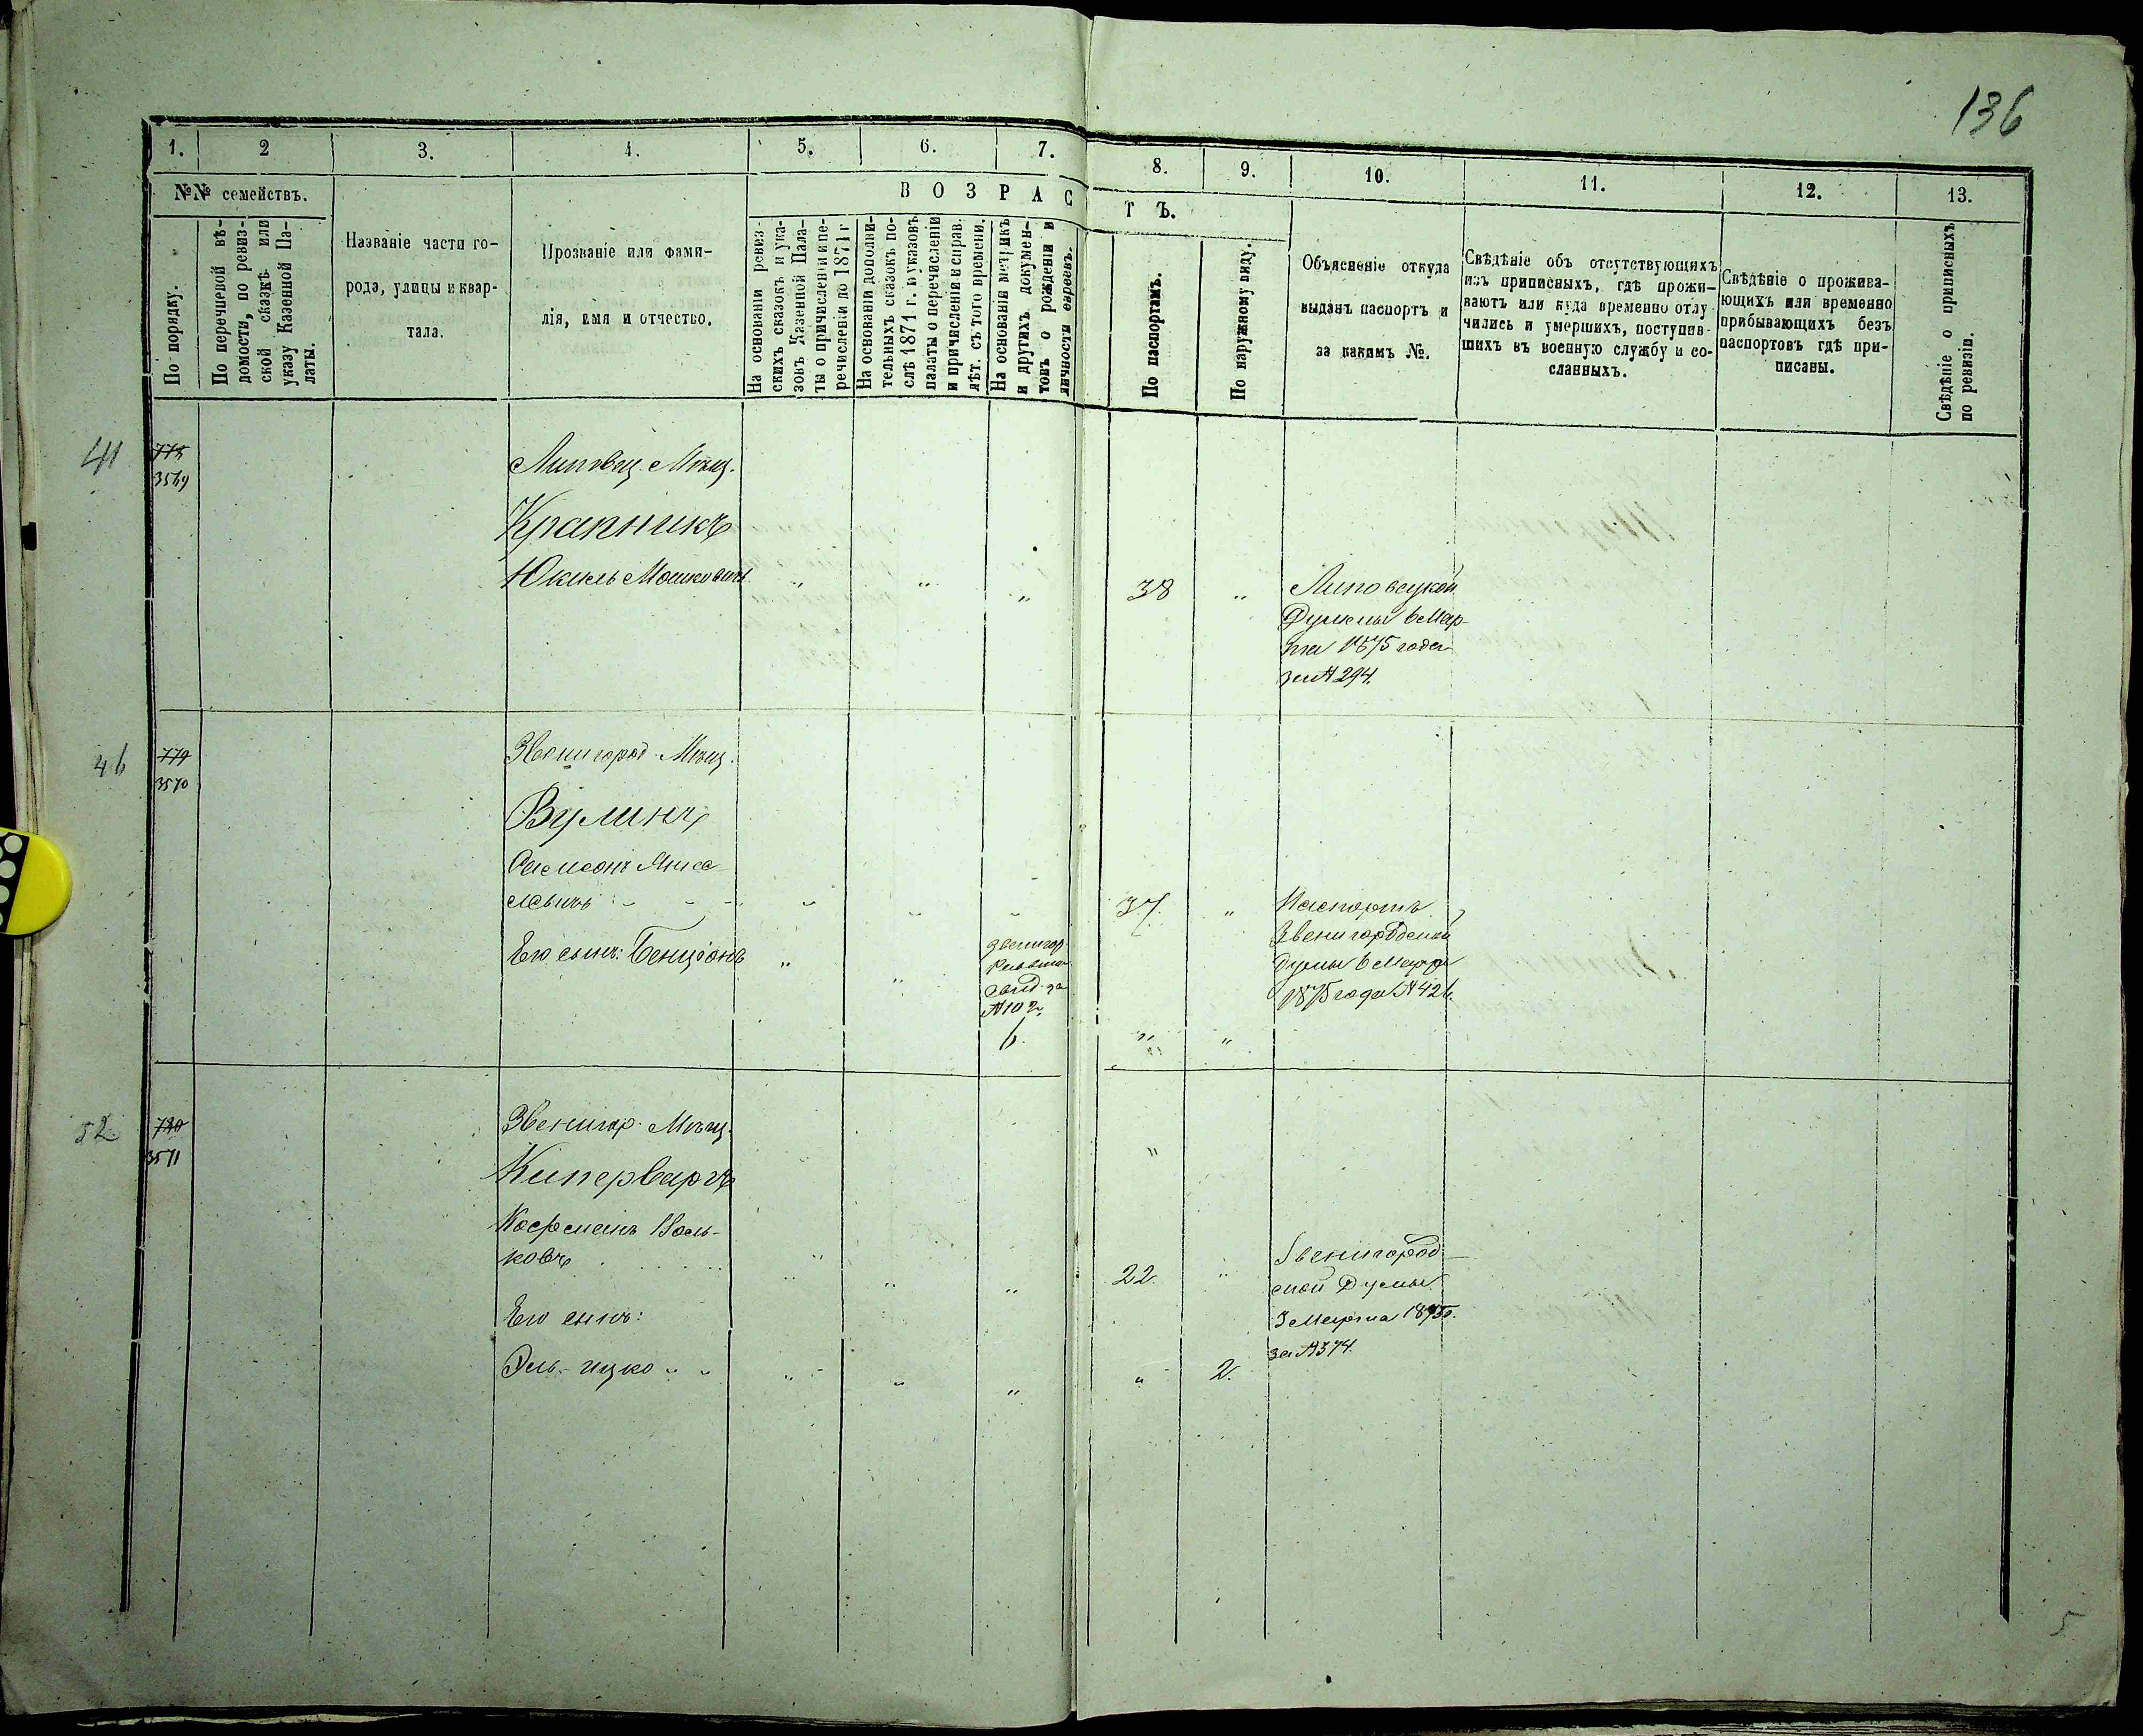 136
1. 2 3. 4. 5. 6. 7. 8. 9. 10. 11. 12. 13.
№№ семействъ.
По порядку.
По перечневой вѣ-
домости, по ревиз-
ской сказкѣ или
указу Казенной Па-
латы.
Названіе части го-
рода, улицы и квар-
тала.
Прозваніе или фами-
лія, имя и отчество.
ВОЗРАСТЪ.
На основаніи ревиз-
скихъ сказокъ и ука-
зовъ Казенной Пала-
ты о причисленіи и пе-
речисленіи до 1871 г
На основаніи дополни-
тельныхъ сказокъ по-
слѣ 1871 г. и указовъ
палаты о перечисленіи
и причисленіи и справ.
лѣт. съ того времени.
На основаніи метрикъ
и другихъ докумен-
товъ о рожденіи и
личности евреевъ.
По паспортамъ.
По наружному виду.
Объясненіе откуда
выданъ паспортъ и
за какимъ №.
Свѣдѣніе объ отсутствующихъ
изъ приписныхъ, гдѣ прожи-
ваютъ или куда временно отлу
чились и умершихъ, поступив-
шихъ въ военную службу и со-
сланныхъ.
Свѣдѣніе о прожива-
ющихъ или временно
прибывающихъ безъ
паспортовъ гдѣ при-
писаны.
Свѣдѣніе о приписныхъ
по ревизіи.
41 778
3569
Липовец. Мѣщ.
Крапникъ
Юкиль Мошковичъ " " " 38 "
Липовецкой
Думы 6 Мар-
та 1875 года
за № 294.
46 779
3570
Звенигород. Мѣщ.
Вулинъ,
37. "
Паспортъ
Звенигородской
Думы 6 Марта
1875 года № 426.
Его сынъ: Бенціонъ " "
Звенигор.
Раввина
свид. за
№ 102.
6. " "
52 780
3571
Звенигор. Мѣщ.
Кипервартъ
ковъ " " " 22. "
Звенигород-
ской Думы
3 Марта 1875г.
за № 374.
Его сынъ:
Эль-Ицко " " " " " 2.
5